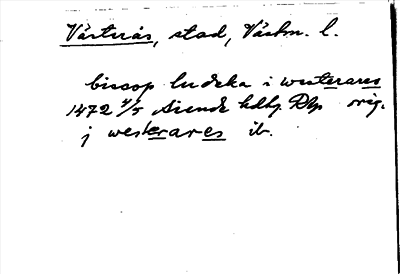 Västerås, stad, Västm. l.
biscop ludeka i westerares
1472 4/5 Siende hdbg. Dbr orig.
j westerares ib.